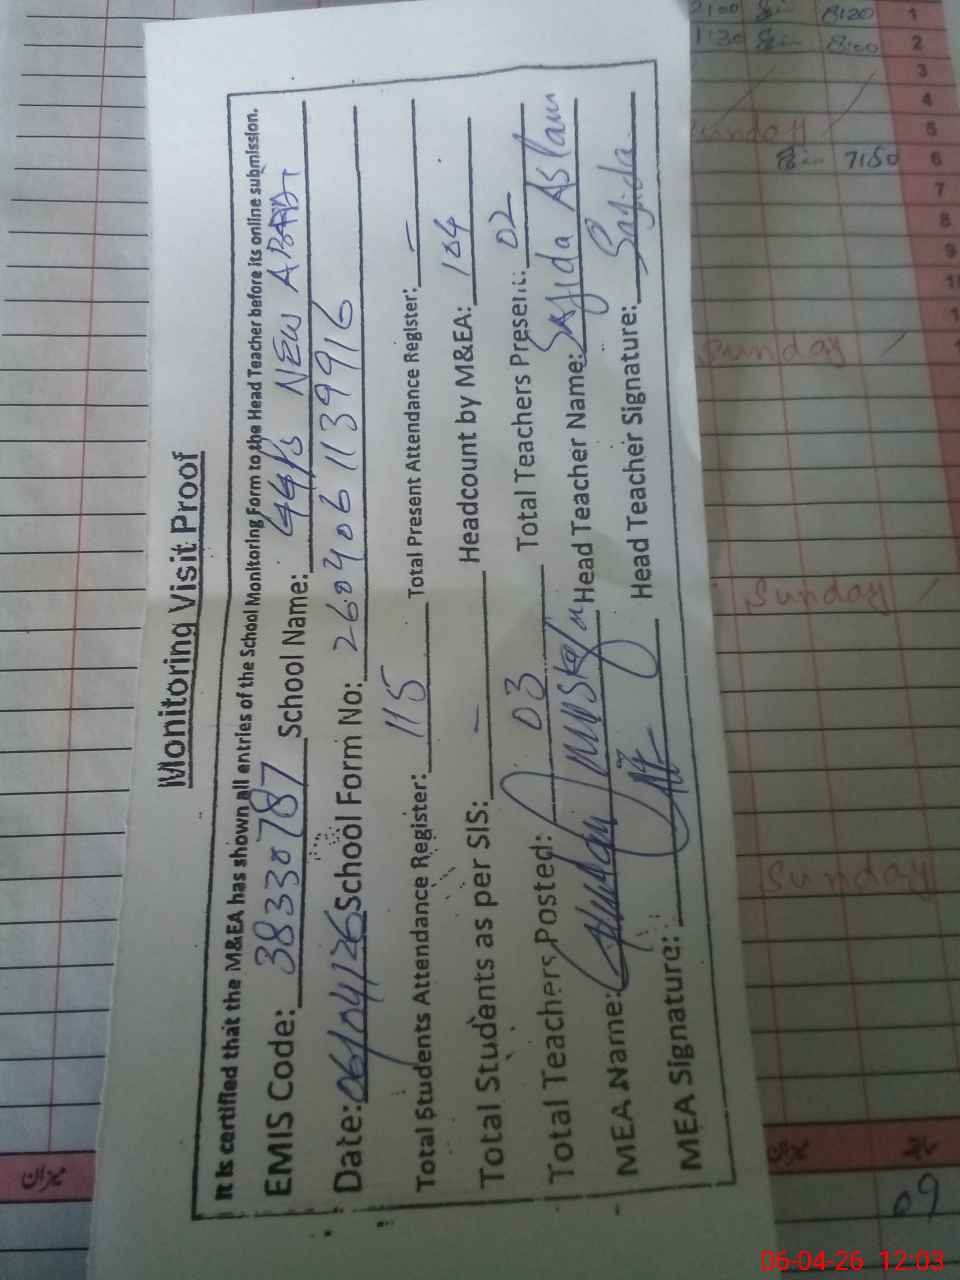 Monitoring Visit Proof
It is certified that the M&EA has shown all entries of the School Monitoring Form to the Head Teacher before its online submission.
EMIS Code: 38330787 School Name: GGPS NEW ABADI
Date: 06/04/26 School Form No: 2604061139916
Total Students Attendance Register: 115 Total Present Attendance Register: —
Total Students as per SIS: — Headcount by M&EA: 104
Total Teachers Posted: 03 Total Teachers Present: 02
MEA Name: Ghulam Mustafa Head Teacher Name: Sajida Aslam
MEA Signature: Head Teacher Signature: Sajida
8:20 1
1:30 8:00 2
3
4
Sunday 5
7:50 6
7
8
9
Sunday
Sunday
Sunday
میزان
میزان
09
06-04-26 12:03